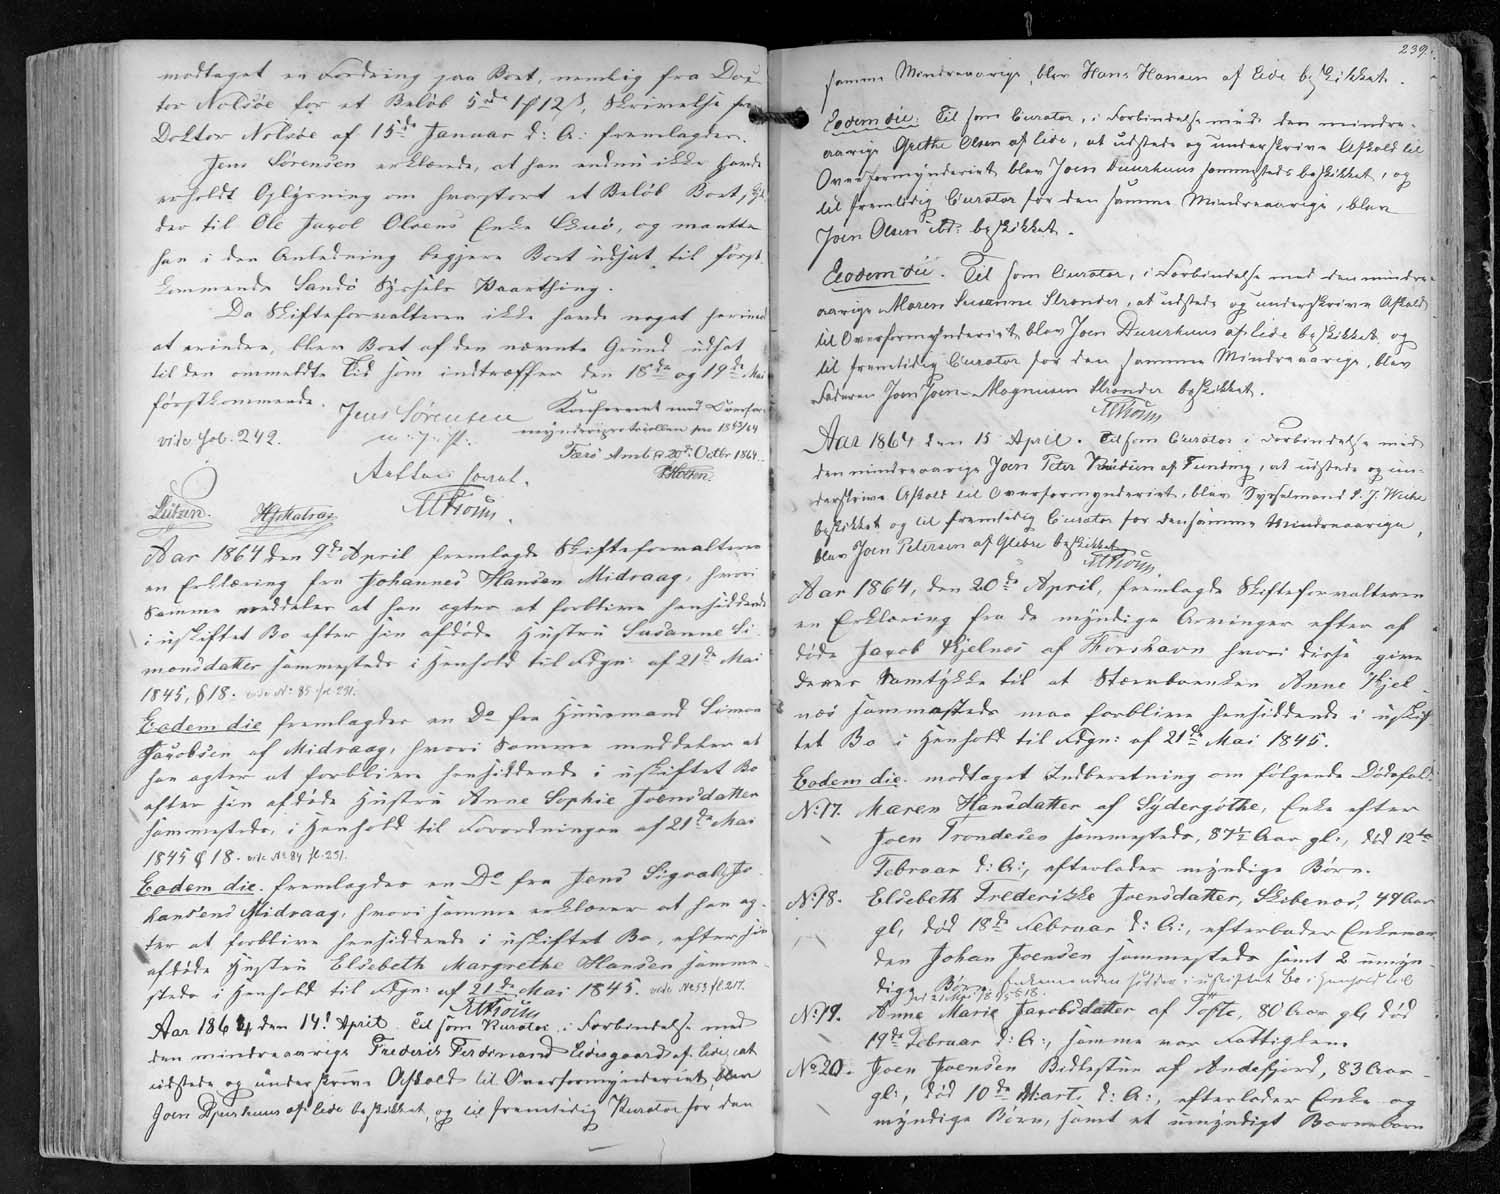 modtaget en Fordring paa Boet, nemlig fra Doc
tor Nolsøe for et Beløb 5 rd 1 ₰ 12 ß, Skrivelse fra
Doktor Nolsøe af 15de Januar d: A: fremlagdes.
Jens Sørensen erklærede, at han endnu ikke havde
erholdt Oplysning om hvorstort et Beløb Boet,
der til Ole Jacob Olsens Enke Skuø, og maatte
han i den Anledning begjere Boet udsat til først-
kommende Sandø Syssels Vaarthing.
Da Skifteforvalteren ikke havde noget herimod
at erindre, blev Boet af den nævnte Grund udsat
til den ommeldte Tid som indtræffer den 18de og 19de Mai
førstkommende.
Jens Sørensen
vide fol. 242.
Konfereret med Overfor-
mynderiprotocollen pro 1863/64
Færø Amt d 20de Octbr 1864
Lützen.
HTholm.
Aar 1864 den 9de April fremlagde Skifteforvalteren
en Erklæring fra Johannes Hansen Midvaag, hvori
Samme meddeler at han agter at forblive hensiddende
i uskiftet Bo efter sin afdøde Hustru Susanne Si-
monsdatter sammesteds i Henhold til Fdgn: af 21de Mai
1845, § 18. vide No 85 fol 231.
Eodem die fremlagdes en Do fra Huusmand Simon
Jacobsen af Midvaag, hvori Samme meddeler at
han agter at forblive hensiddende i uskiftet Bo
efter sin afdøde Hustru Anne Sophie Joensdatter
sammesteds, i Henhold til Forordningen af 21de Mai
1845 § 18. vide No 84 fl. 231.
Eodem die. fremlagdes en Do fra Jens Sigvald Jo-
hansens Midvaag, hvori samme erklærer at han ag-
ter at forblive hensiddende i uskiftet Bo, efter sin
afdøde Hustru Elsebeth Margrethe Hansen samme-
steds i Henhold til Fdgn: af 21de Mai 1845. vide No 53 fl. 217.
HTholm
Aar 1864 den 14. April. Til som Kurator i Forbindelse med
den mindreaarige Frederik Ferdinand Eidesgaard af Eide, at
udstede og underskrive Afkald til Overformynderiet, blev
Joen Djurhuus af Eide beskikket, og til fremtidig Kurator for den
239.
samme Mindreaarige, blev Hans Hansen af Eide beskikket.
Eodem die: Til som Curator, i Forbindelse med den mindre-
aarige Grethe Olsen af Eide, at udstede og underskrive Afkald til
Overformynderiet blev Joen Duurhuus sammesteds beskikket, og
til fremtidig Curator for den samme Mindreaarige, blev
Joen Olsen ibd: beskikket.
Eodem die. Til som Curator, i Forbindelse med den mindre-
aarige Maren Susanne Strønder, at udstede og underskrive Afkald
til Overformynderiet, blev Joen Duurhuus af Eide beskikket og
til fremtidig Curator for den samme Mindreaarige, blev
Faderen Joen Joen-Magnussen Strønder beskikket.
HTholm
Aar 1864 den 15 April. Til som Curator i Forbindelse med
den mindreaarige Joen Peter af Funding, at udstede og un-
derskrive Afkald til Overformynderiet, blev Sysselmand J. Weihe
beskikket og til fremtidig Curator for den samme Mindreaarige,
blev Joen Petersen af Glibre beskikket
HTholm
Aar 1864, den 20de April, fremlagde Skifteforvalteren
en Erklæring fra de myndige Arvinger efter af
døde Jacob Kjelnæs af Thorshavn hvori disse give
deres Samtykke til at Stærbøenken Anne Kjel-
næs sammesteds maa forblive hensiddende i uskif
tet Bo i Henhold til Fdgn: af 21de Mai 1845.
Eodem die. modtaget Indberetning om følgende Dødsfald:
No: 17. Maren Hansdatter af Sydergøthe, Enke efter
Joen Trondesen sammesteds, 87½ Aar gl:, død 12te
Februar d: A:, efterlader myndige Børn.
No: 18. Elsebeth Frederikke Joensdatter, Skibenæs, 49 Aar
gl, død 18de Februar d: A:, efterlader Enkeman
den Johan Joensen sammesteds samt 2 umyn-
dige Børn. Enkemanden sidder i uskiftet Bo i Henhold til
Fdr 21 Mai 1845 § 18.
No: 19. Anne Marie Jacobsdatter af Tofte, 80 Aar gl, død
19de Februar d: A:, samme var Fattiglem.
No 20. Joen Joensen Bidlestue af Andefjord, 83 Aar
gl:, død 10de Marts d: A:, efterlader Enke og
myndige Børn, samt et umyndigt Barnebarn